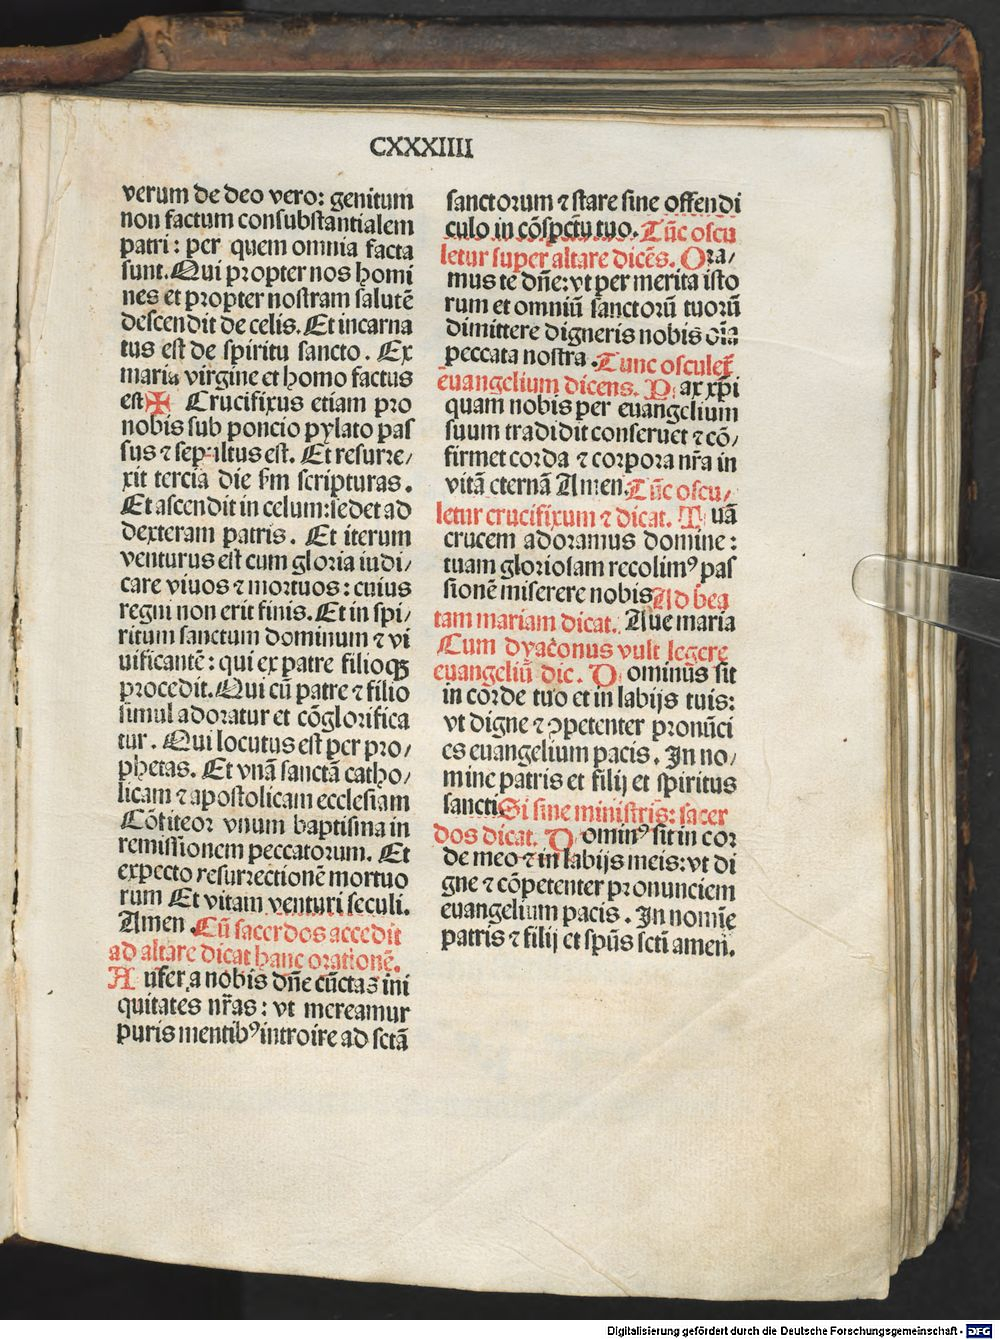 CXXXIIII
verum de deo vero: genitum
non factum consubstantialem
patri: per quem omnia facta
sunt. Qui propter nos homi
nes et propter nostram salutē
descendit de celis. Et incarna
tus est de spiritu sancto. Ex
maria virgine et homo factus
est ✠ Crucifixus etiam pro
nobis sub poncio pylato pas
sus ⁊ sepultus est. Et resurre/
xit tercia die ẜm scripturas.
Et ascendit in celum: sedet ad
dexteram patris. Et iterum
venturus est cum gloria iudi/
care viuos ⁊ mortuos: cuius
regni non erit finis. Et in spi/
ritum sanctum dominum ⁊ vi
uificantē: qui ex patre filioqꝫ
procedit. Qui cū patre ⁊ filio
simul adoratur et cōglorifica
tur. Qui locutus est per pro/
phetas. Et vnā sanctā catho/
licam ⁊ apostolicam ecclesiam
Cōfiteor vnum baptisma in
remissionem peccatorum. Et
expecto resurrectionē mortuo
rum Et vitam venturi seculi.
Amen. Cū sacerdos accedit
ad altare dicat hanc orationē.
Aufer a nobis dn̄e cūctas ini
quitates nr̄as: vt mereamur
puris mentibꝰ introire ad sctā
sanctorum ⁊ stare sine offendi
culo in cōspctū tuo. Tūc oscu
letur super altare dicēs. Ora/
mus te dn̄e: vt per merita isto
rum et omniū sanctorū tuorū
dimittere digneris nobis oīa
peccata nostra. Tunc osculet᷑
euangelium dicens. Pax xp̄i
quam nobis per euangelium
suum tradidit conseruet ⁊ cō/
firmet corda ⁊ corpora nr̄a in
vitā eternā Amen. Tūc oscu/
letur crucifixum ⁊ dicat. Tuā
crucem adoramus domine:
tuam gloriosam recolimꝰ pas
sionē miserere nobis Ad bea
tam mariam dicat. Aue maria
Cum dyaconus vult legere
euangeliū dic. Dominus sit
in corde tuo et in labijs tuis:
vt digne ⁊ ꝯpetenter pronūci
es euangelium pacis. In no/
mine patris et filij et spiritus
sancti Si sine ministris: sacer
dos dicat. Dominꝰ sit in cor
de meo ⁊ in labijs meis: vt di
gne ⁊ cōpetenter pronunciem
euangelium pacis. In nomīe
patris ⁊ filij et spūs scti amen.
Digitalisierung gefördert durch die Deutsche Forschungsgemeinschaft - DFG